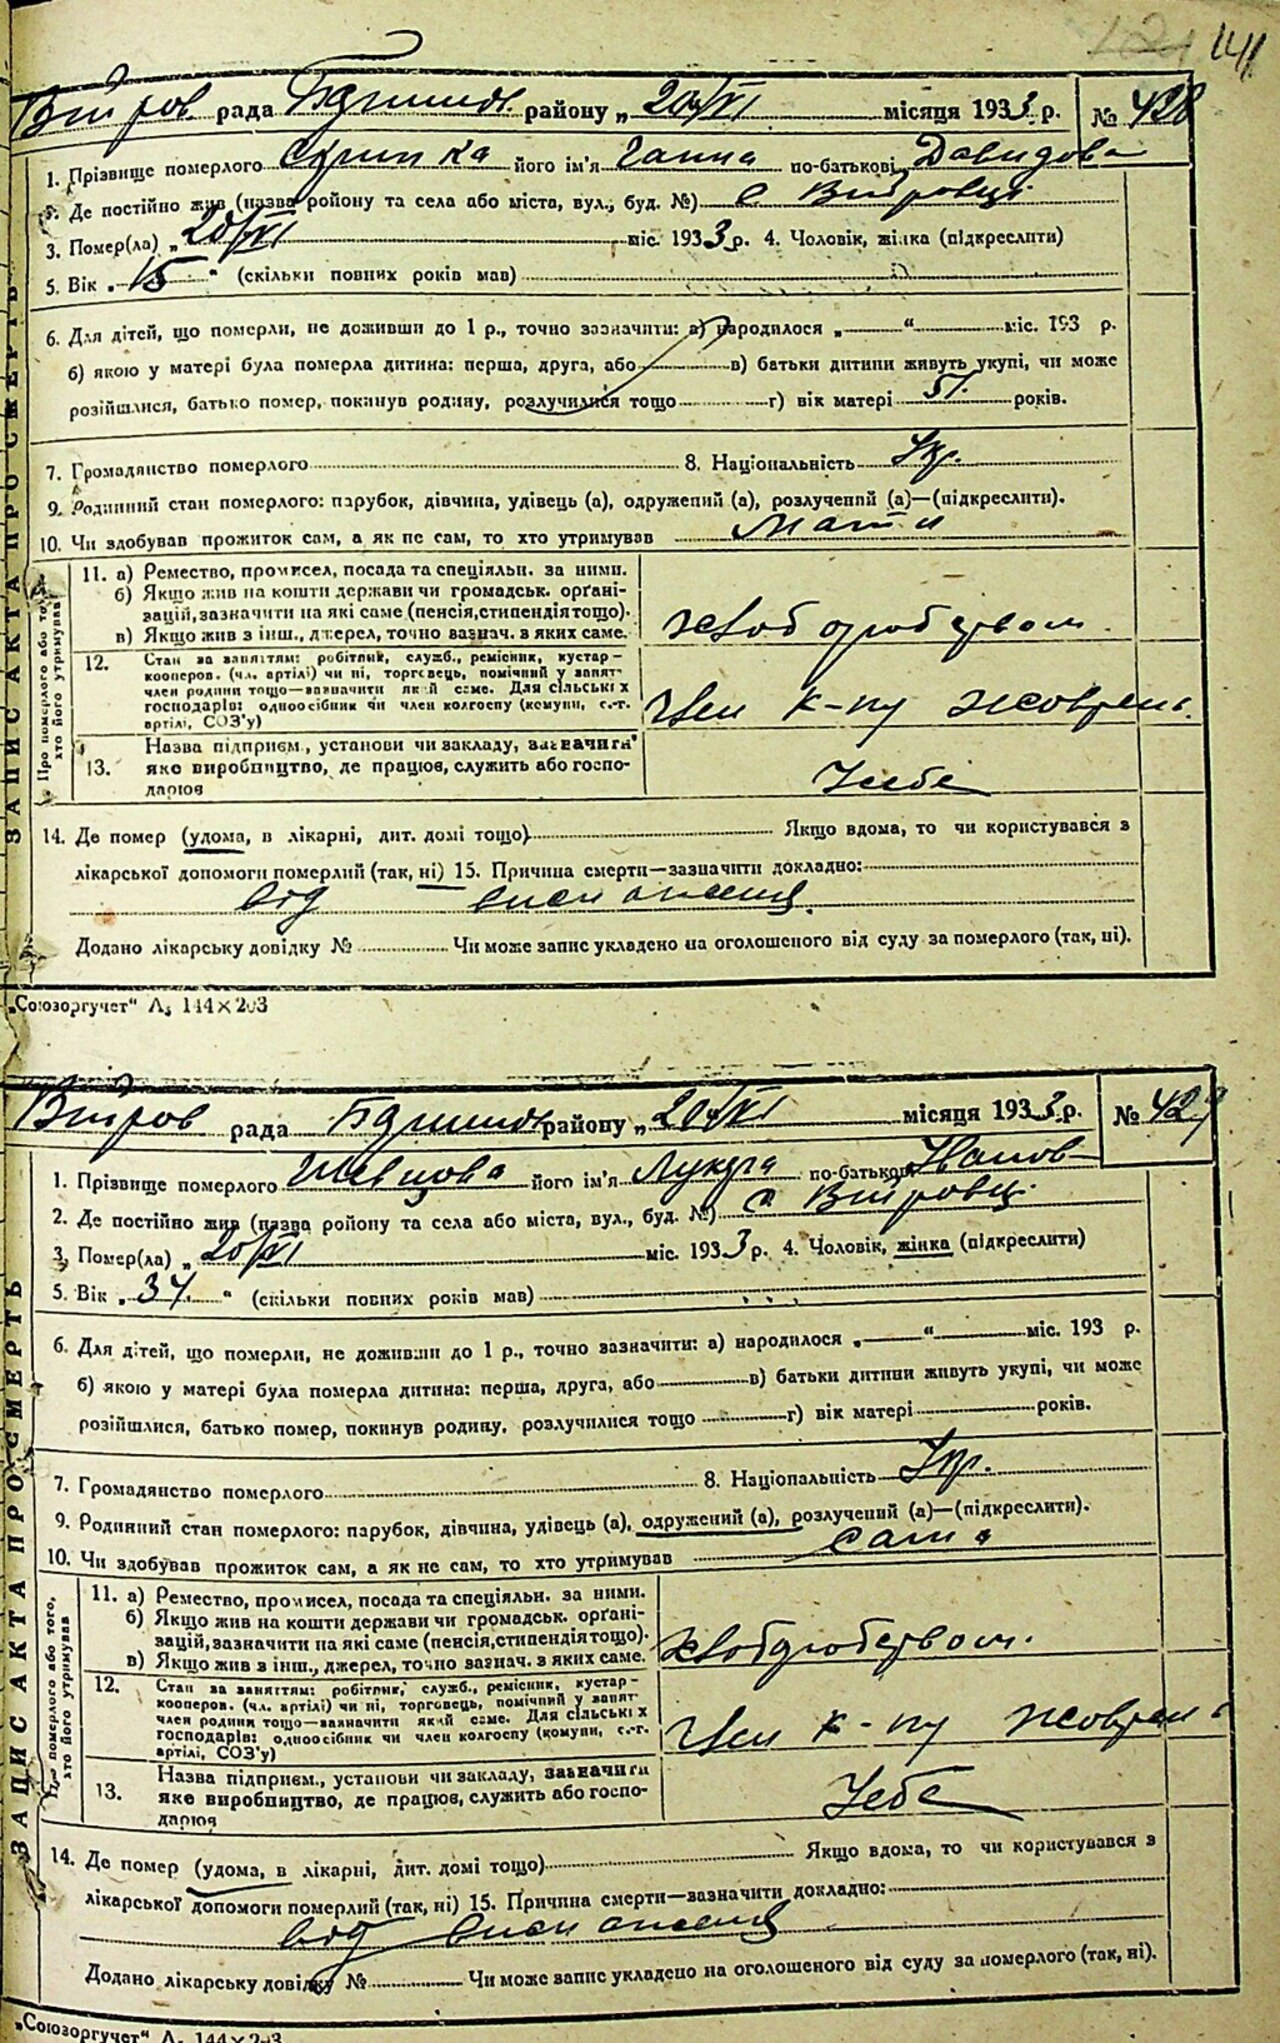 141
рада району „20/VI місяця 1933 р. № 428
1. Прізвище померлого його ім'я Ганна по-батькові Давидова
2. Де постійно жив (назва ройону та села або міста, вул., буд. №) с Вітровці
3. Помер(ла) „20/VI міс. 1933 р. 4. Чоловік, жінка (підкреслити)
5. Вік „15“ (скільки повних років мав)
6. Для дітей, що померли, не доживши до 1 р., точно зазначити: а) народилося „ “ міс. 193 р.
б) якою у матері була померла дитина: перша, друга, або в) батьки дитини живуть укупі, чи може
розійшлися, батько помер, покинув родину, розлучилися тощо г) вік матері 51 років.
7. Громадянство померлого 8. Національність Укр.
9. Родинний стан померлого: парубок, дівчина, удівець (а), одружений (а), розлучений (а)—(підкреслити).
10. Чи здобував прожиток сам, а як не сам, то хто утримував Мати
ЗАПИС АКТА ПРО СМЕРТЬ
Про померлого або того,
хто його утримував
11. а) Ремество, промисел, посада та спеціяльн. за ними.
б) Якщо жив на кошти держави чи громадськ. орґані-
зацій, зазначити на які саме (пенсія, стипендія тощо).
в) Якщо жив з інш., джерел, точно зазнач. з яких саме.
хліборобством.
12. Стан за заняттям: робітник, служб., ремісник, кустар-
кооперов. (чл. артілі) чи ні, торговець, помічний у занят-
член родини тощо—зазначити який саме. Для сільських
господарів: одноосібник чи член колгоспу (комуни, с.-г.
артілі, СОЗ'у)
Член к-пу Жовтень.
13. Назва підприєм., установи чи закладу, зазначити
яке виробництво, де працює, служить або госпо-
дарює
У себе
14. Де помер (удома, в лікарні, дит. домі тощо) Якщо вдома, то чи користувався з
лікарської допомоги померлий (так, ні) 15. Причина смерти—зазначити докладно:
від виснаження
Додано лікарську довідку № Чи може запис укладено на оголошеного від суду за померлого (так, ні).
„Союзоргучет“ А5 144×203
рада району „20/VI місяця 1933 р. № 429
1. Прізвище померлого Шевцова його ім'я по-батькові Іванов
2. Де постійно жив (назва ройону та села або міста, вул., буд. №) с Вітровці
3. Помер(ла) „20/VI міс. 1933 р. 4. Чоловік, жінка (підкреслити)
5. Вік „34“ (скільки повних років мав)
6. Для дітей, що померли, не доживши до 1 р., точно зазначити: а) народилося „ “ міс. 193 р.
б) якою у матері була померла дитина: перша, друга, або в) батьки дитини живуть укупі, чи може
розійшлися, батько помер, покинув родину, розлучилися тощо г) вік матері років.
7. Громадянство померлого 8. Національність Укр.
9. Родинний стан померлого: парубок, дівчина, удівець (а), одружений (а), розлучений (а)—(підкреслити).
10. Чи здобував прожиток сам, а як не сам, то хто утримував сама
ЗАПИС АКТА ПРО СМЕРТЬ
Про померлого або того,
хто його утримував
11. а) Ремество, промисел, посада та спеціяльн. за ними.
б) Якщо жив на кошти держави чи громадськ. орґані-
зацій, зазначити на які саме (пенсія, стипендія тощо).
в) Якщо жив з інш., джерел, точно зазнач. з яких саме.
хліборобством.
12. Стан за заняттям: робітник, служб., ремісник, кустар-
кооперов. (чл. артілі) чи ні, торговець, помічний у занят-
член родини тощо—зазначити який саме. Для сільських
господарів: одноосібник чи член колгоспу (комуни, с.-г.
артілі, СОЗ'у)
Член к-пу Жовтень
13. Назва підприєм., установи чи закладу, зазначити
яке виробництво, де працює, служить або госпо-
дарює
У себе
14. Де помер (удома, в лікарні, дит. домі тощо) Якщо вдома, то чи користувався з
лікарської допомоги померлий (так, ні) 15. Причина смерти—зазначити докладно:
від виснаження
Додано лікарську довідку № Чи може запис укладено на оголошеного від суду за померлого (так, ні).
„Союзоргучет“ А5 144×203